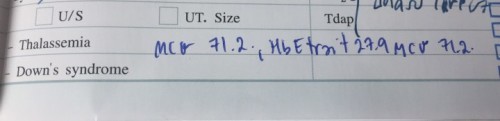 U/S UT. Size Tdap
- Thalassemia MCV 71.2, HbE trait 27.9 MCV 71.2.
- Down's syndrome